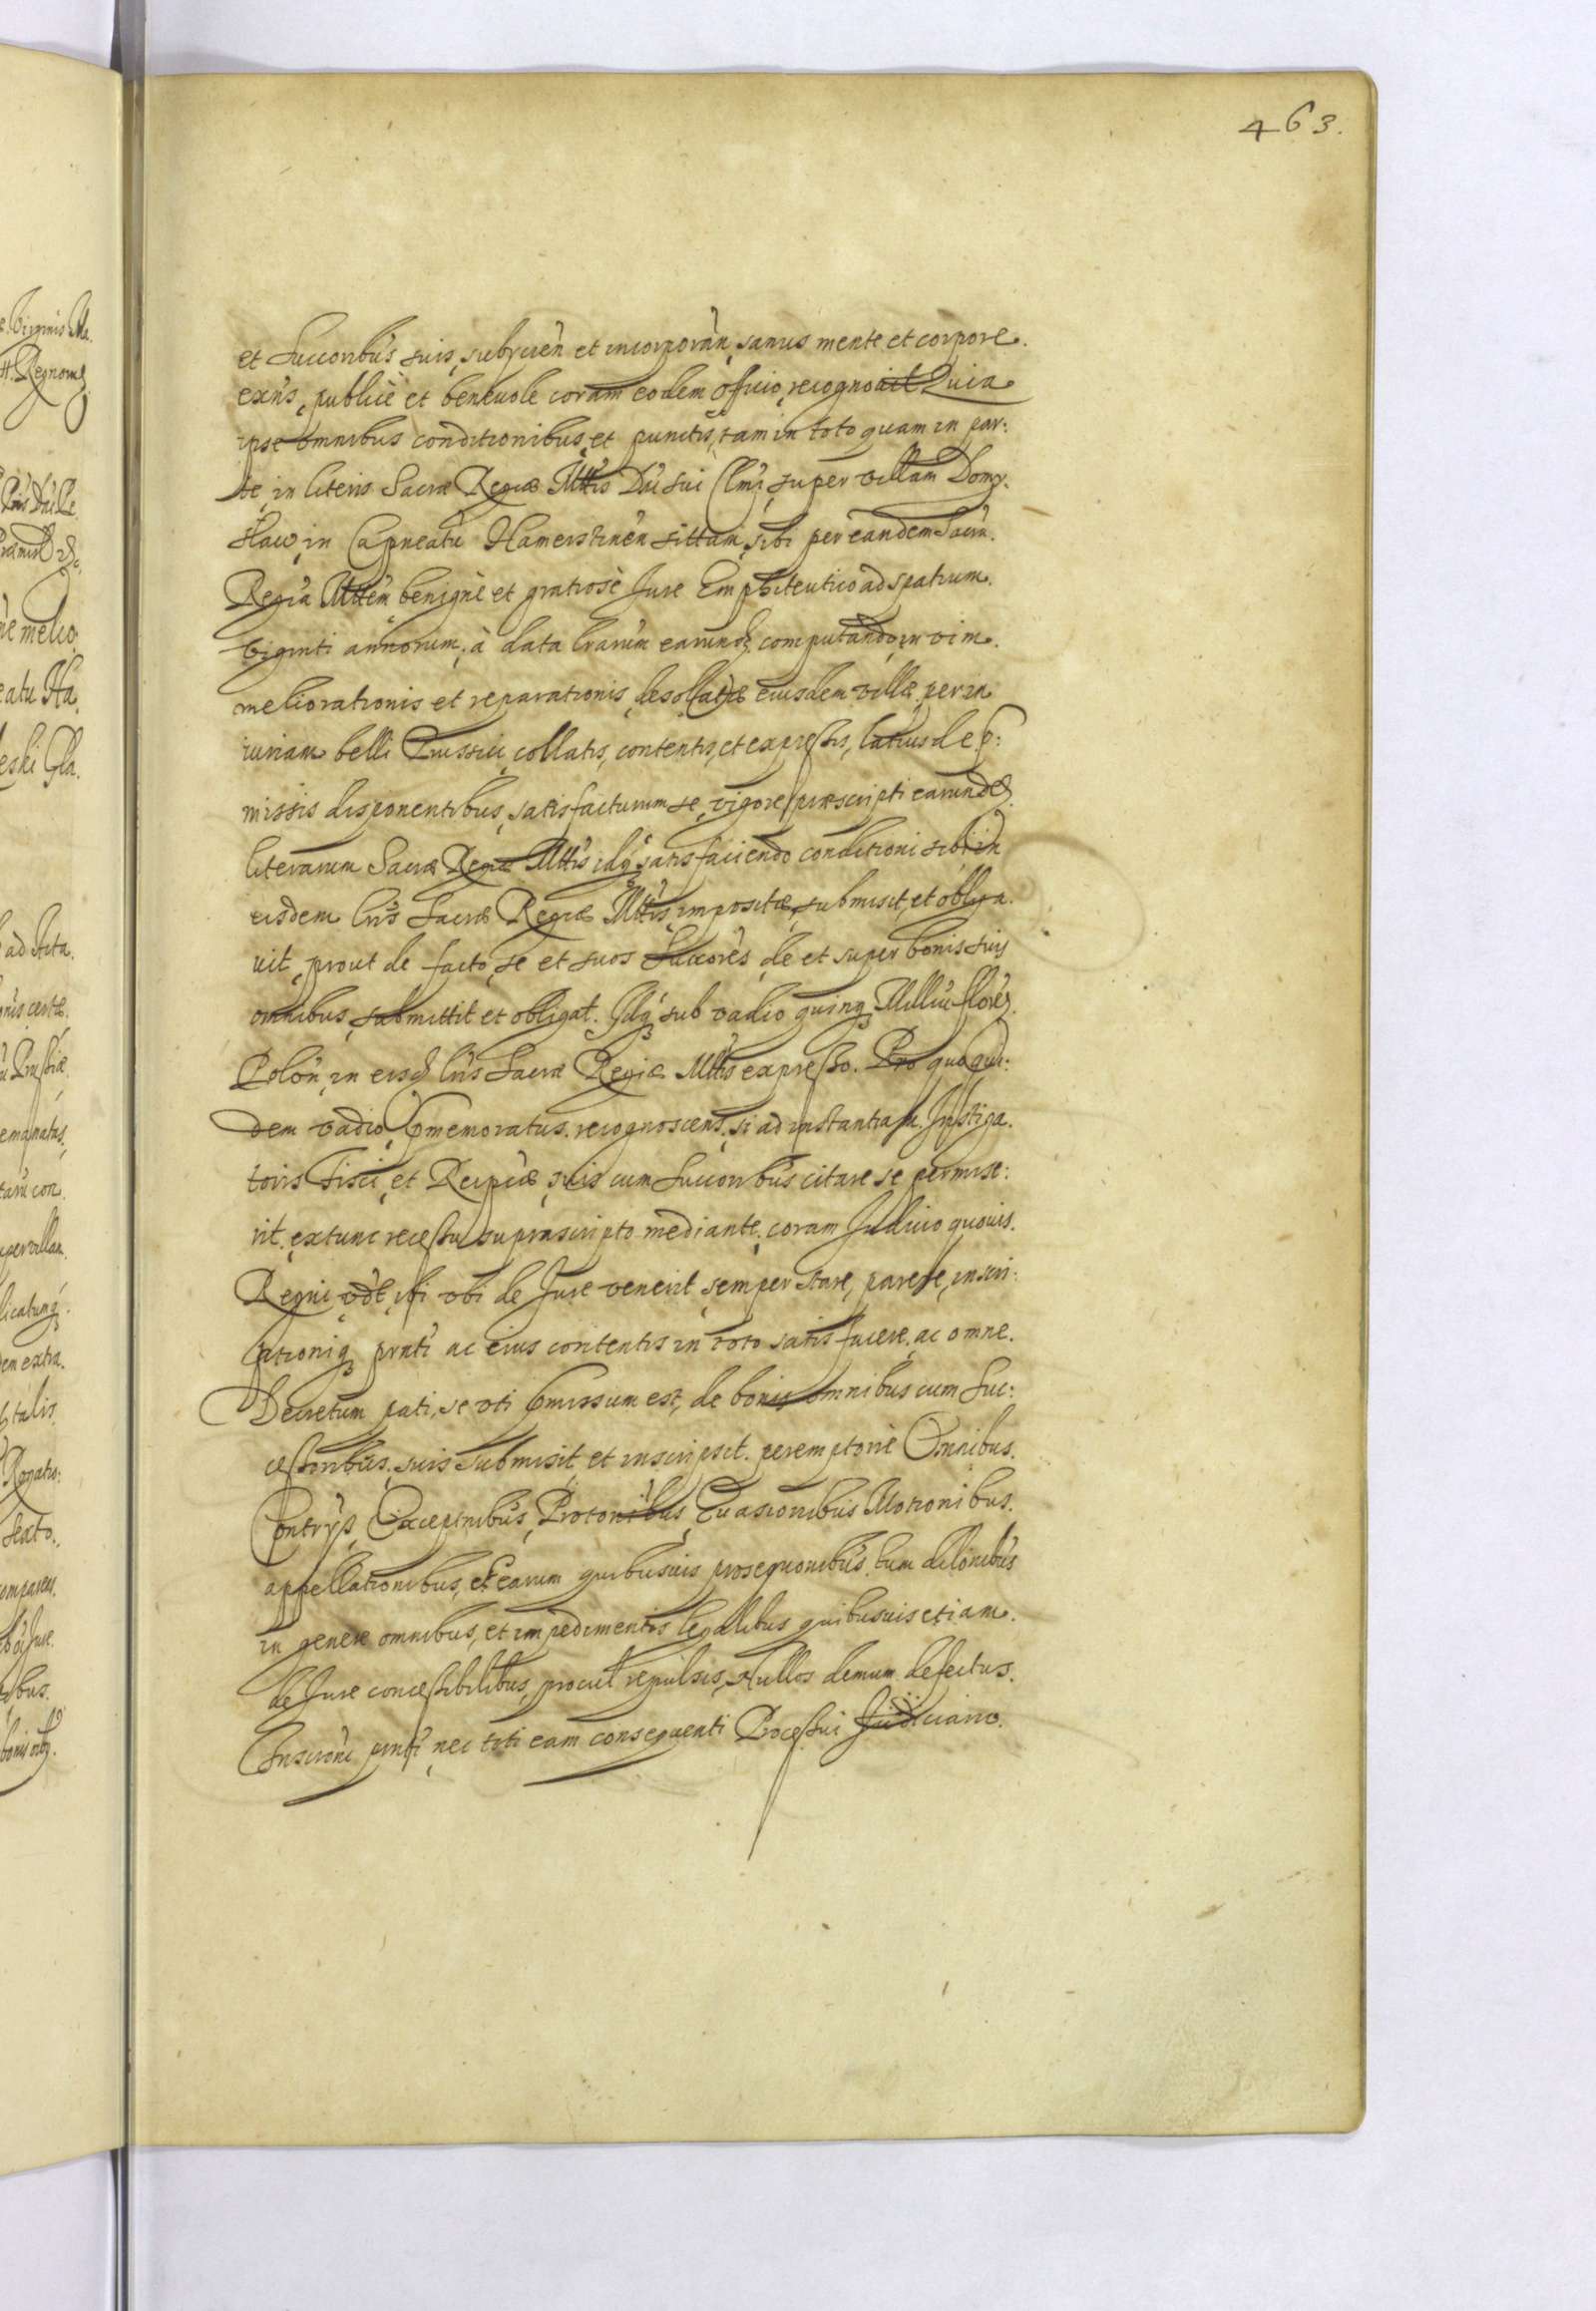 463.
et Succoribus suis, subycien et incorporan, sanus mente et corpore.
exns, publicè et beneuole coram eodem officio, recognouit Quia
ipse omnibus conditionibus, et punctis, tam in toto quam in par:
te, in literis Sacræ Regiæ Mttis Dni sui Clmi, super villam Domy.
sław, in Capneatu Hamerstinen sittam, sibi per eandem Sacrn.
Regiā Mttem benignè et gratiosè Jure Emphiteutico ad spatium.
viginti annorum, à data lrarum earund. computando, in vim.
meliorationis et reparationis, desollatæ eiusdem villæ, per in
iuriam belli Prussici, collatis, contentis, et expressis, latius de p:
missis disponentibus, satisfacturum se, vigore præscripti earundē.
literarum Sacræ Regiæ Mttis idq satisfaciendo conditioni sibi in
eisdem lris Sacræ Regiæ Mttis, impositæ, submisit, et obliga.
uit, prout de facto, se et suos Succores, de et super bonis suis
omnibus, submittit et obligat. Idq sub vadio quinq Milliū floreῆ.
Polon, in eisd lris Sacræ Regiæ Mttis expresso. Pro quo qui:
dem vadio, pmemoratus. recognoscens, si ad instantiam. Instiga.
toris Fisci, et Reipcæ, suis cum Succoribus citare se permise:
rit. extunc recessu suprascripto mediante, coram Judicio quouis.
Regni, vdt, ibi vbi de Jure venerit, semper stare, parere, inscri:
ptioniq prnti ac eius contentis in toto satisfacere, ac omne.
Decretum pati, se vti pmissum est, de bonis omnibus cum Suc:
cessoribus, suis submisit, et inscripsit. peremptoriè Omnibus.
Contryis, Exceptnibus, Protonibus, Euasionibus Motionibus.
appellationibus, et earum quibusuis prosequonibus. tum dilonibus
in genere omnibus, et impedimentis legalibus quibusuis etiam.
de Jure concessibilibus, procul repulsis, Nullos demum defectus.
Inscroni prnti, nec toti eam consequenti Processui Judiciario.